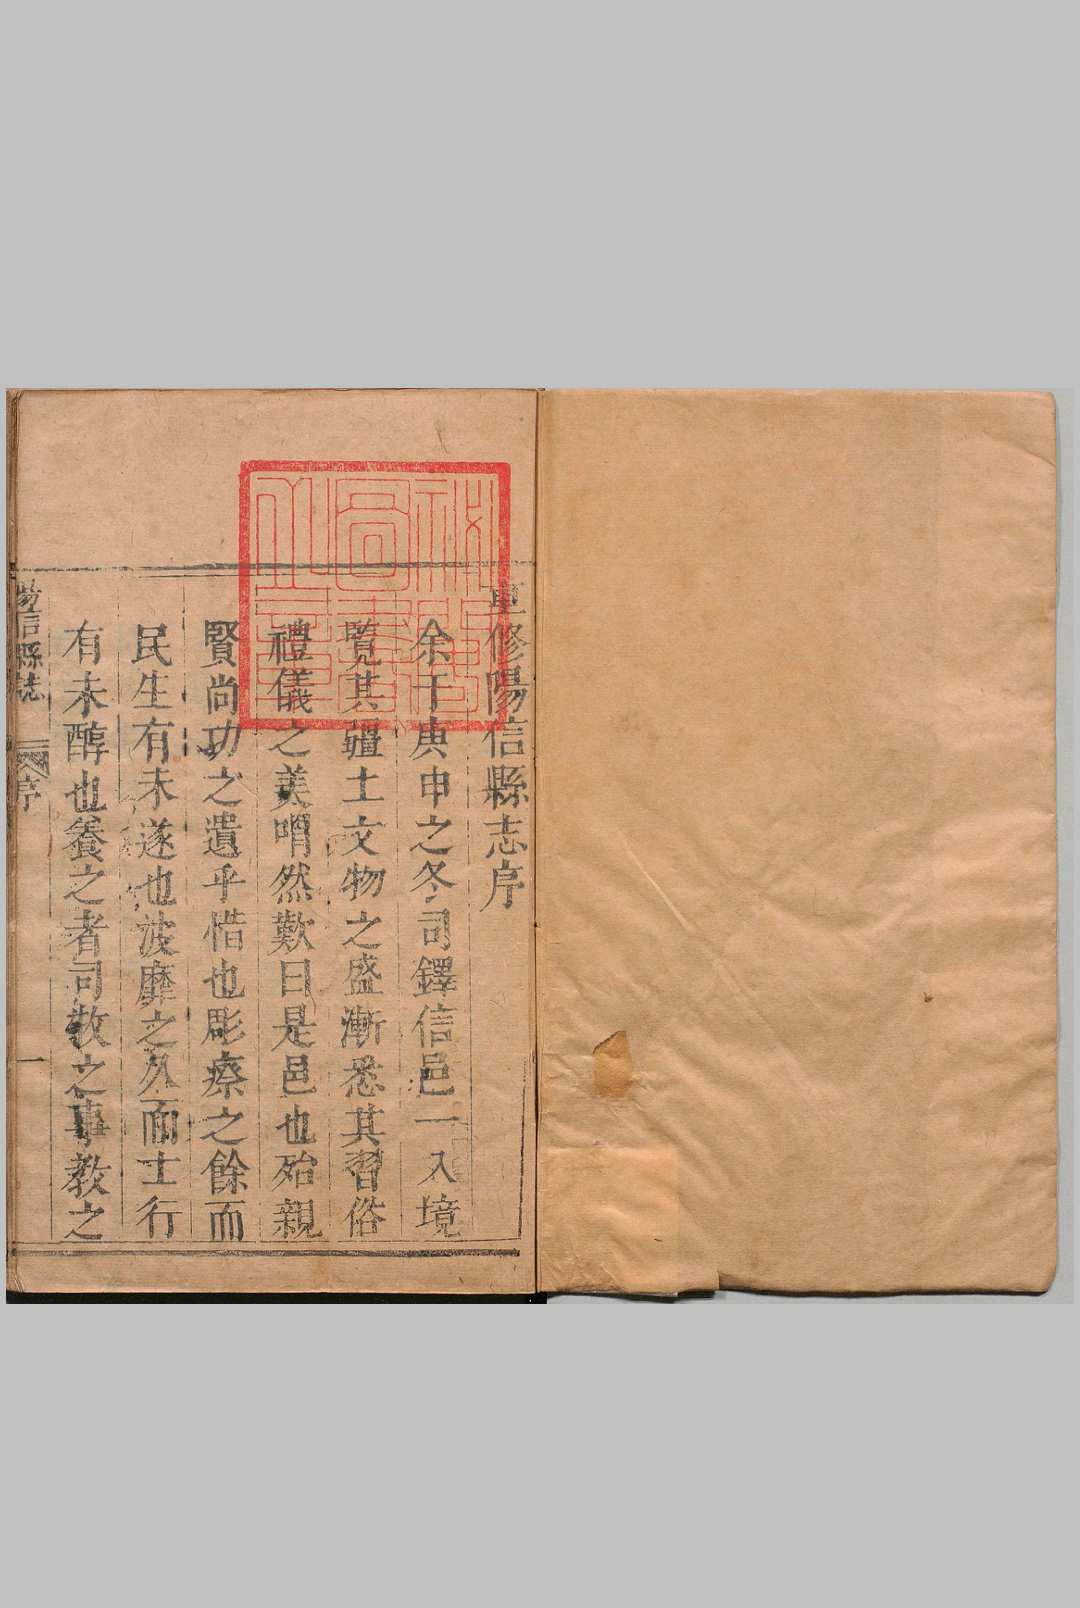 重修陽信縣志序
余于庚申之冬司鐸信邑一入境
覽其疆土文物之盛漸悉其習俗
禮儀之美喟然歎曰是邑也殆親
賢尚功之遺乎惜也彫瘵之餘而
民生有未遂也波靡之久而士行
有未醇也養之者司牧之事教之
陽信縣誌
序
一